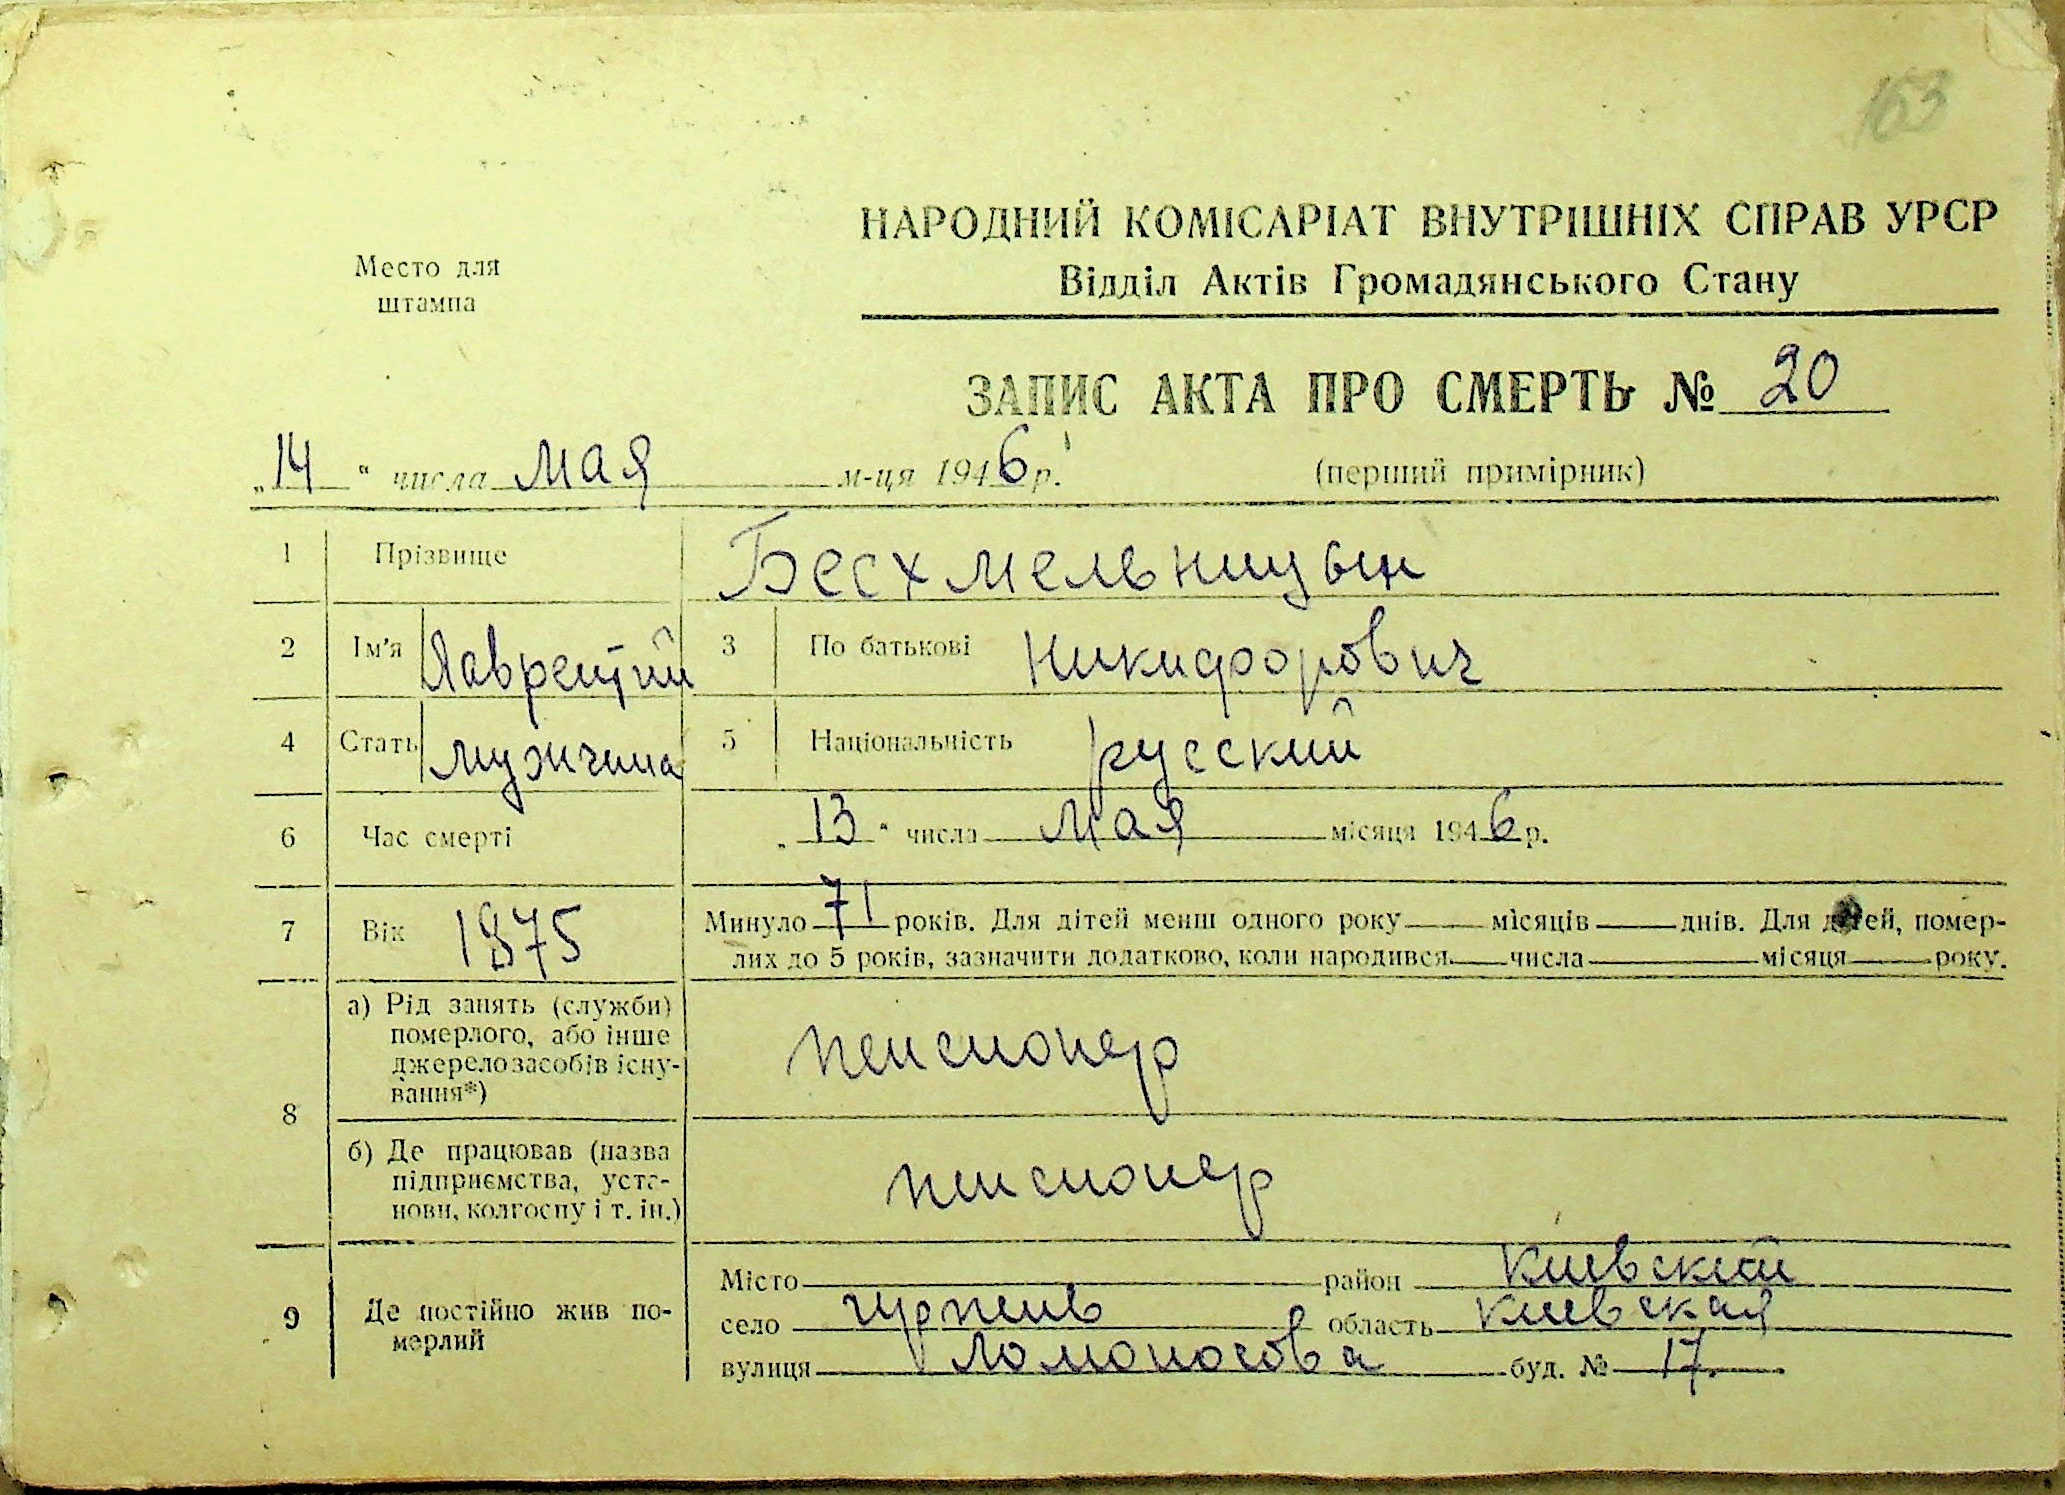 163
НАРОДНИЙ КОМІСАРІАТ ВНУТРІШНІХ СПРАВ УРСР
Место для
штампа
Відділ Актів Громадянського Стану
ЗАПИС АКТА ПРО СМЕРТЬ № 20
„14“ числа мая м-ця 1946 р.
(перший примірник)
1 Прізвище Бесхмельницын
2 Ім'я Лаврентий 3 По батькові Никифорович
4 Стать мужчина 5 Національність русский
6 Час смерті „13“ числа мая місяця 1946 р.
7 Вік 1875 Минуло 71 років. Для дітей менш одного року місяців днів. Для дітей, помер-
лих до 5 років, зазначити додатково, коли народився числа місяця року.
8 а) Рід занять (служби)
померлого, або інше
джерело засобів існу-
вання*)
пенсионер
б) Де працював (назва
підприємства, уста-
нови, колгоспу і т. ін.)
пенсионер
9 Де постійно жив по-
мерлий
Місто район Киевский
село область Киевская
вулиця Ломоносова буд. № 17.